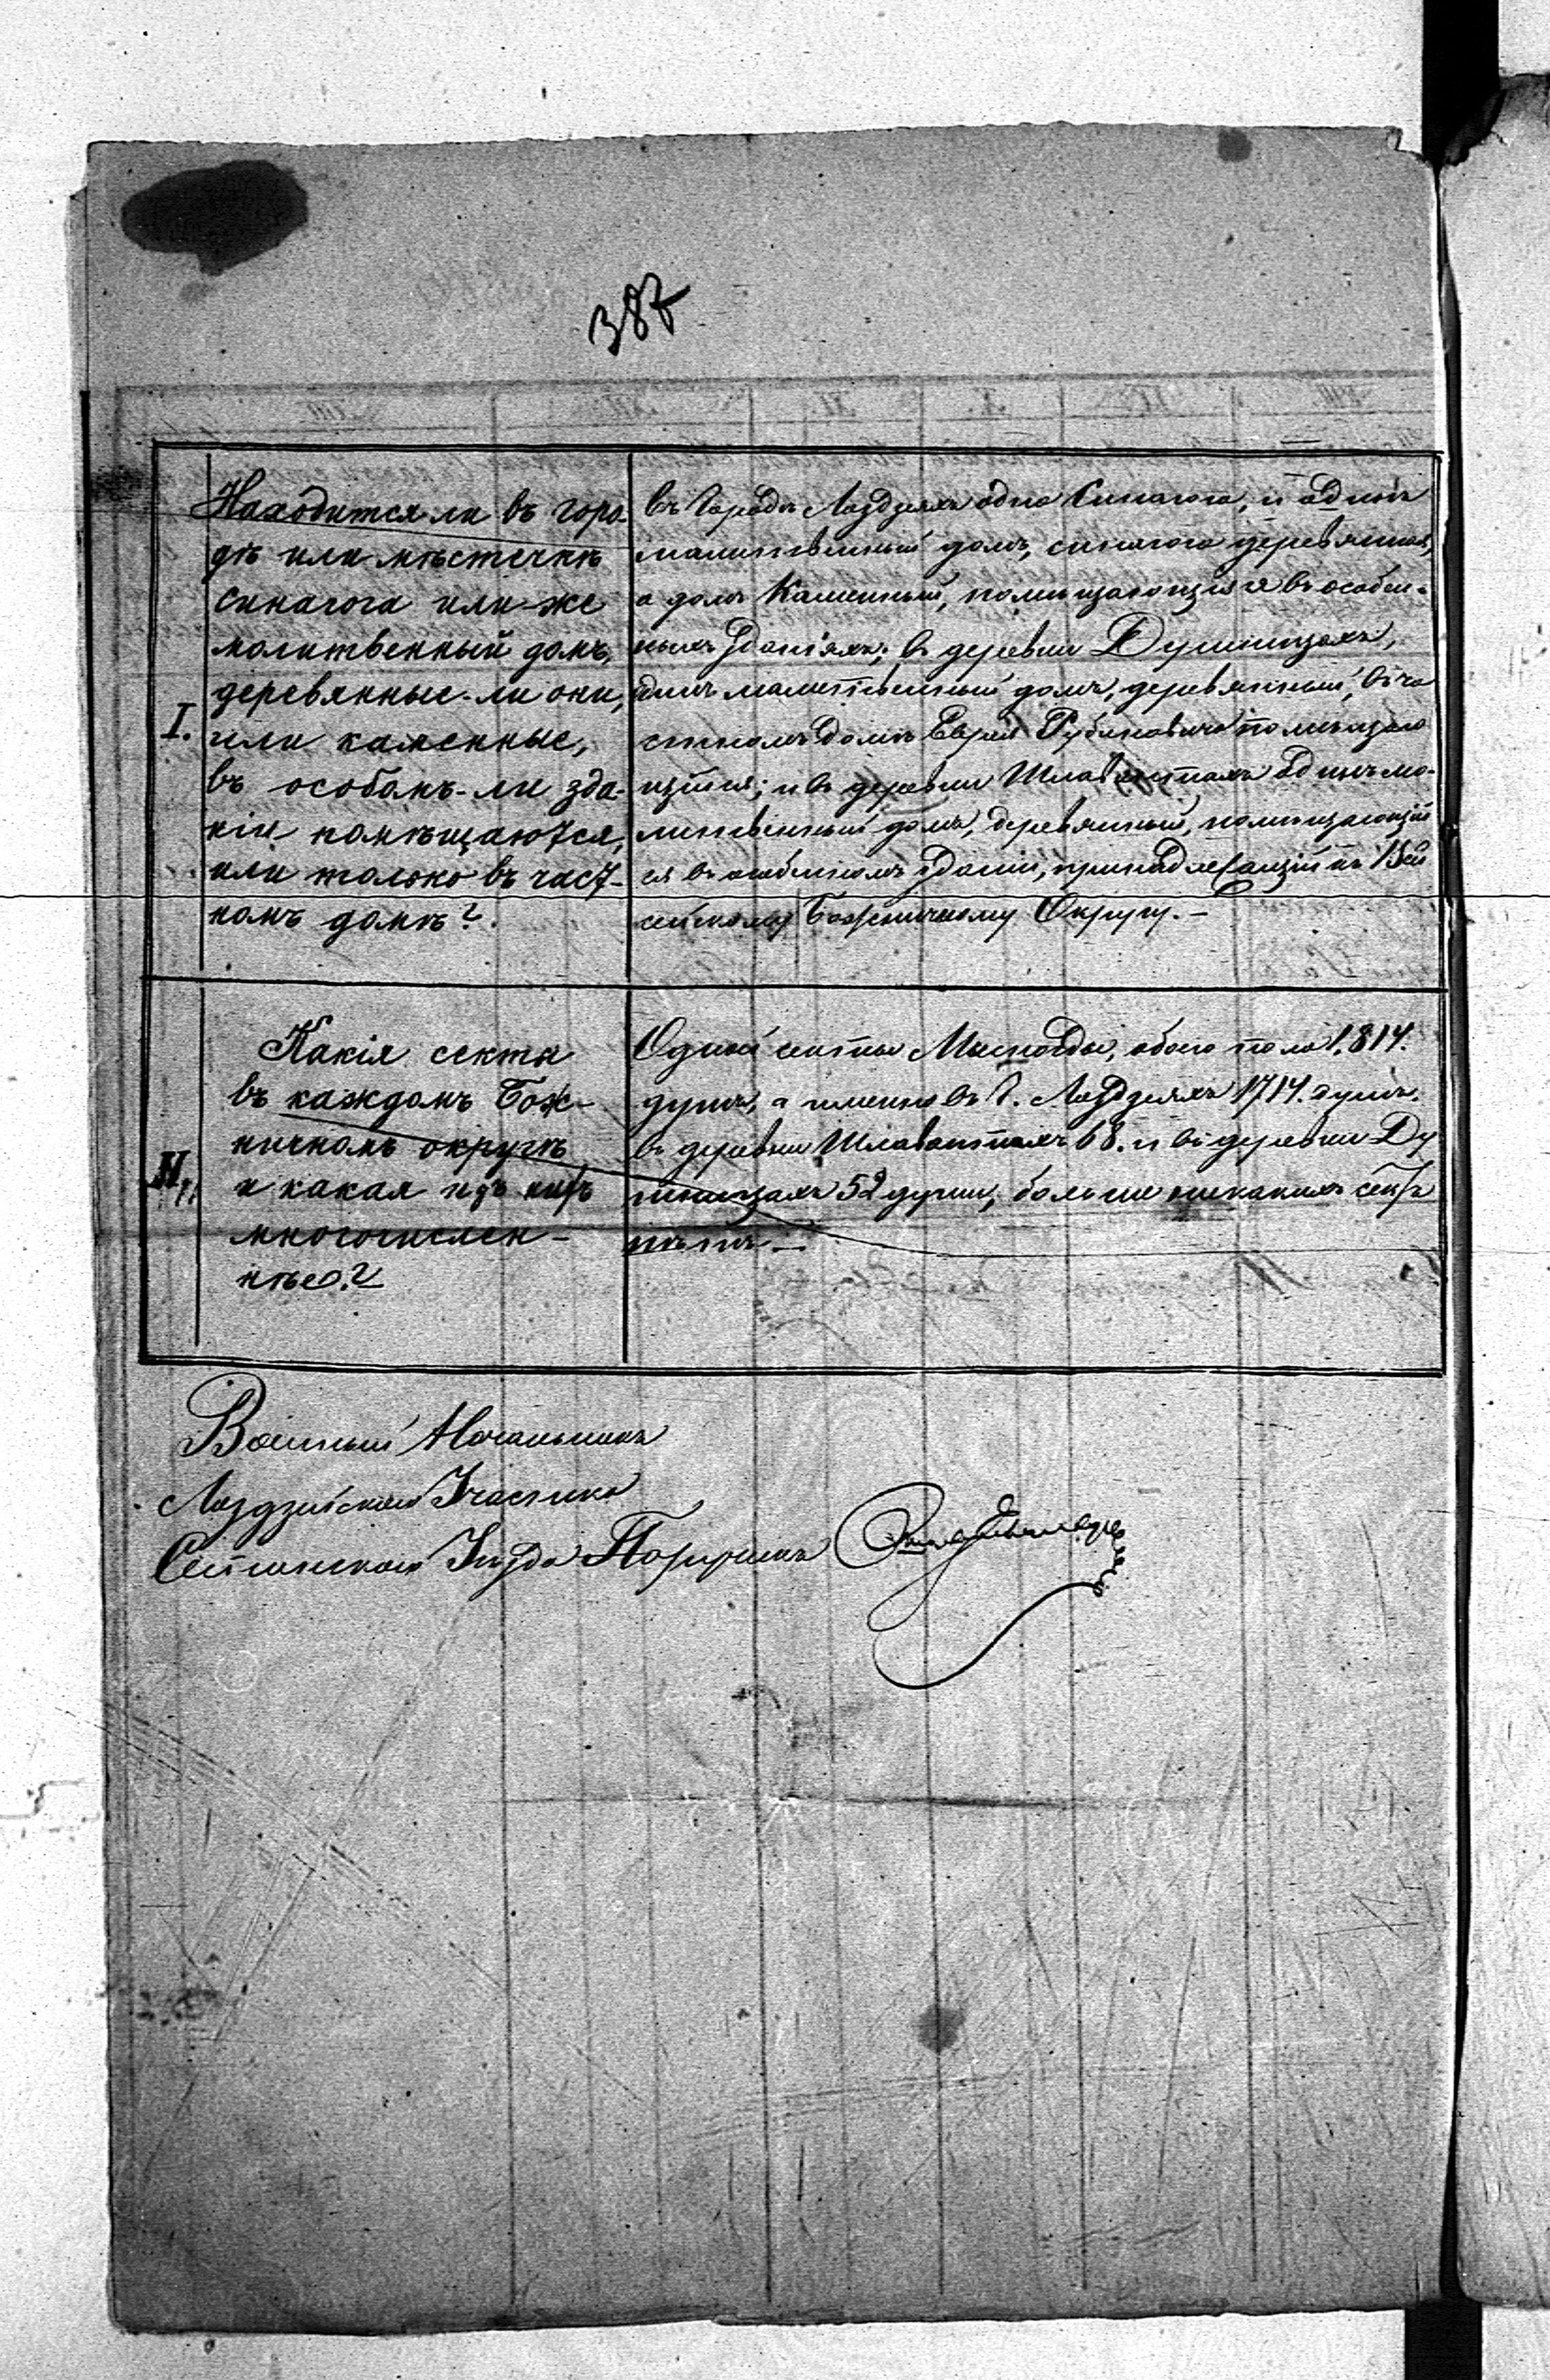 387
I.
Находится ли въ горо-
дѣ или мѣстечкѣ
синагога или-же
молитвенный домъ,
деревянные-ли они,
или каменные,
въ особомъ-ли зда-
нiи помѣщаются,
или только въ част-
номъ домѣ?.
въ Городѣ Лаздзеяхъ одна Синагога, и одинъ
молитвенный домъ, синагога деревянная,
а домъ Каменный, помѣщающiяся въ особен-
ныхъ зданiяхъ; въ деревни
одинъ молитвенный домъ, деревянный, въ ча
стномъ домѣ Еврея Рубиновича помѣщаю
щiйся; и въ деревни Шлавантахъ одинъ мо-
литвенный домъ, деревянный, помѣщающiй
ся въ особенномъ зданiи, принадлежащiй къ Сей
сейскому Божничному Округу. –
II.
Какiя секты
въ каждомъ Бож-
ничномъ округѣ
и какая изъ нихъ
многочислен-
нѣе?
Одной секты Мисногды, обоего пола 1,814.
душъ, а именно въ Г. Лаздзеяхъ 1714. душъ.
въ деревни Шлавантахъ 68. и въ деревни Ду
52 души, больше никакихъ сектъ
нѣтъ. –
Военный Начальникъ
Лаздзейскаго Участка
Сейненскаго Уѣзда Поручикъ